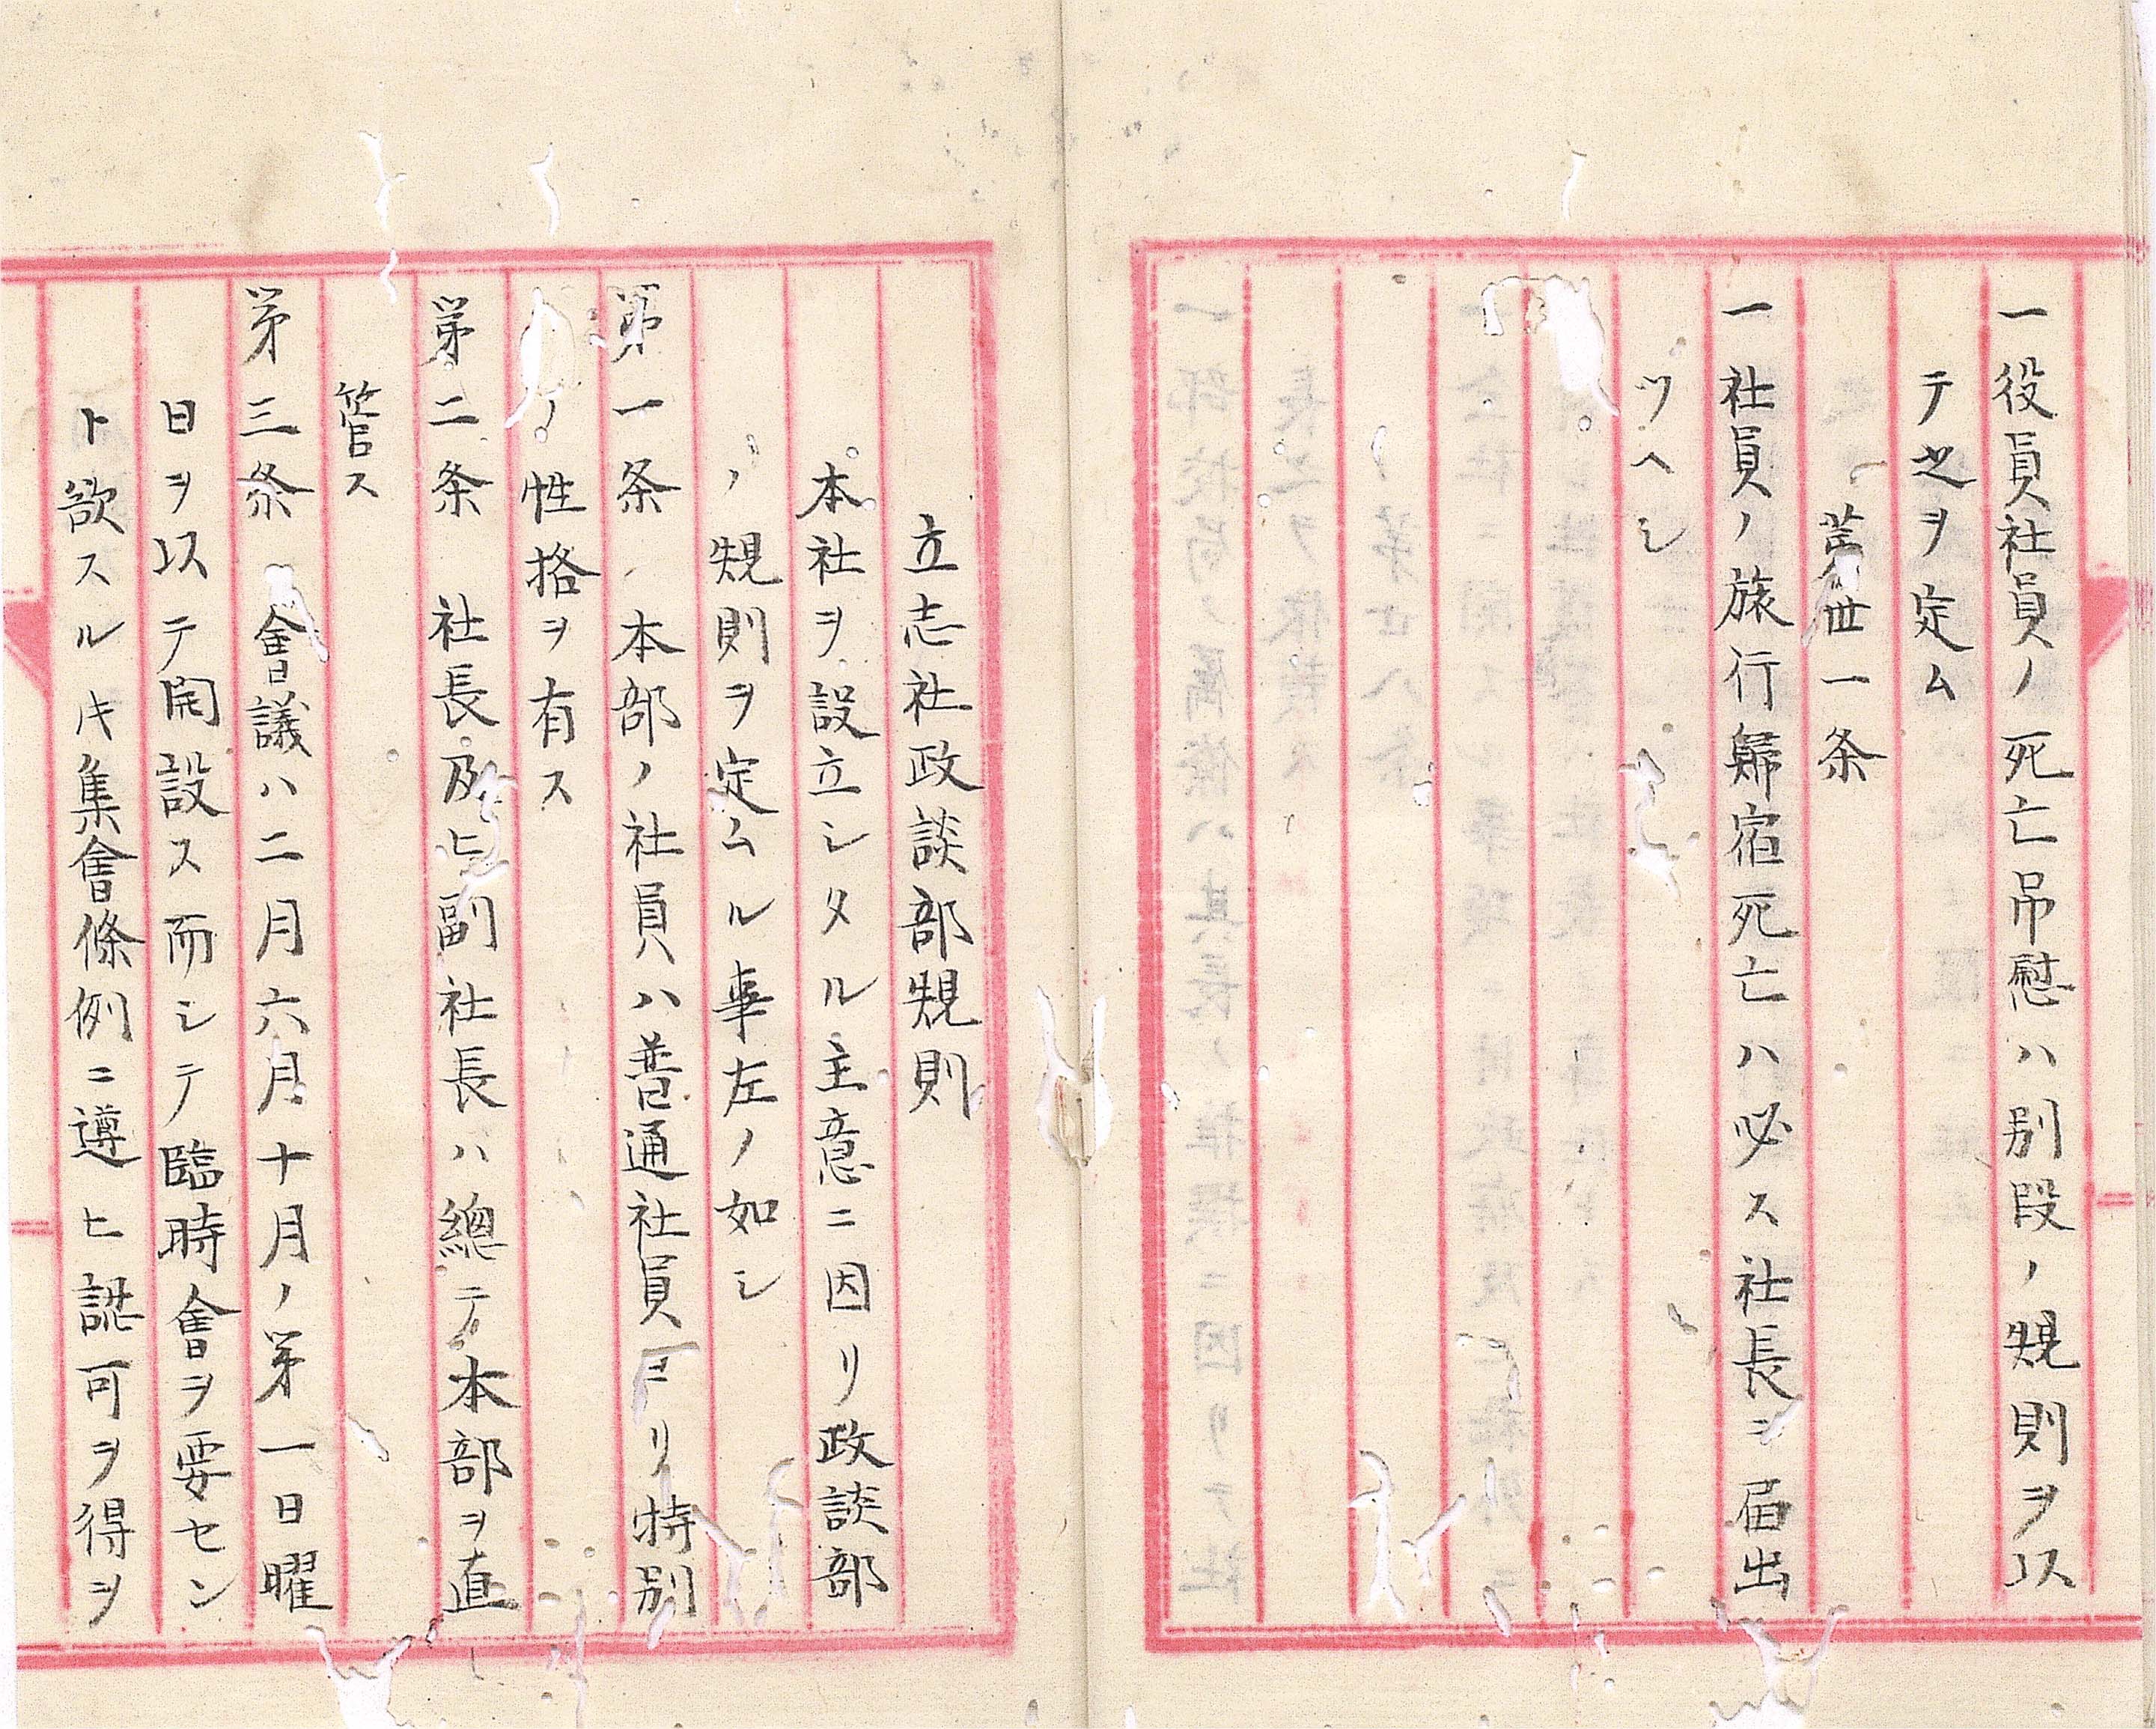 一役員社員ノ死亡吊慰ハ別段ノ規則ヲ以
テ之ヲ定ム
第卅一条
一社員ノ旅行歸宿死亡ハ必ス社長ニ届出
ツヘシ
立志社政談部規則
本社ヲ設立シタル主意ニ因リ政談部
ノ規則ヲ定ムル事左ノ如シ
第一条 本部ノ社員ハ普通社員ヨリ特別
ノ性格ヲ有ス
第二条 社長及ヒ副社長ハ總テ本部ヲ直
管ス
第三条 會議ハ二月六月十月ノ第一日曜
日ヲ以テ開設ス而シテ臨時會ヲ要セン
ト欲スル𪜈集會條例ニ遵ヒ認可ヲ得ヲ